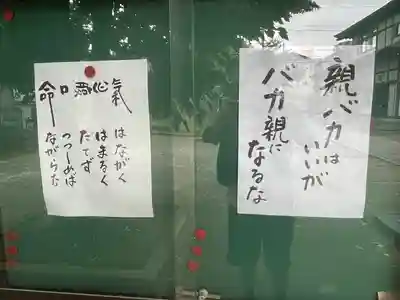 親バカは
いいが
バカ親に
なるな
氣はながく
心はまるく
腹たてず
口つつしめば
命ながらえ